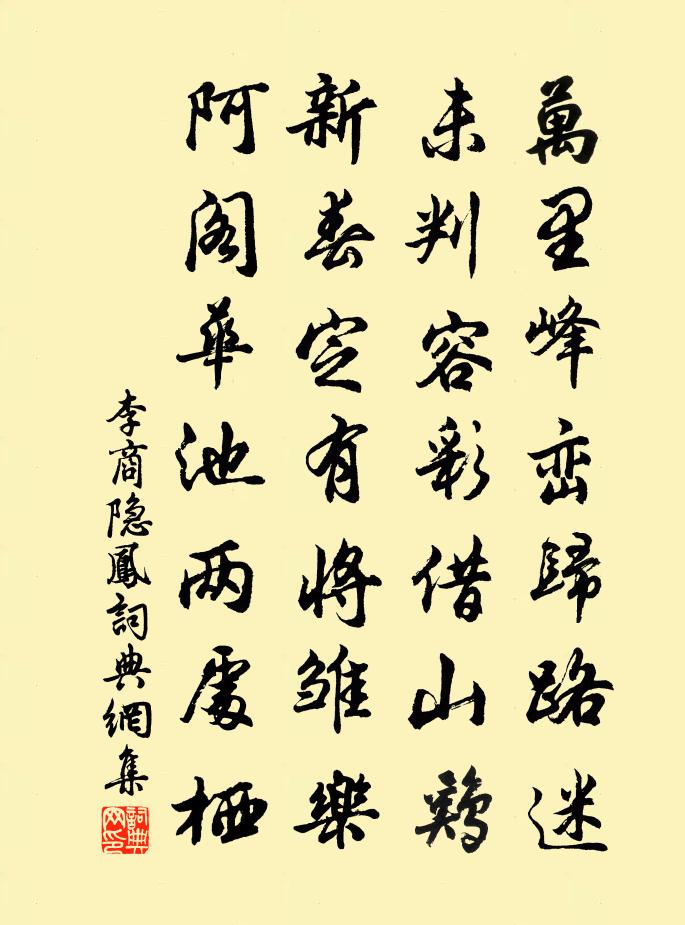 萬里峰巒歸路迷
未判容彩借山鷄
新春定有將雛樂
阿阁華池两處栖
李商隐鳳詞典網集
詞典网印